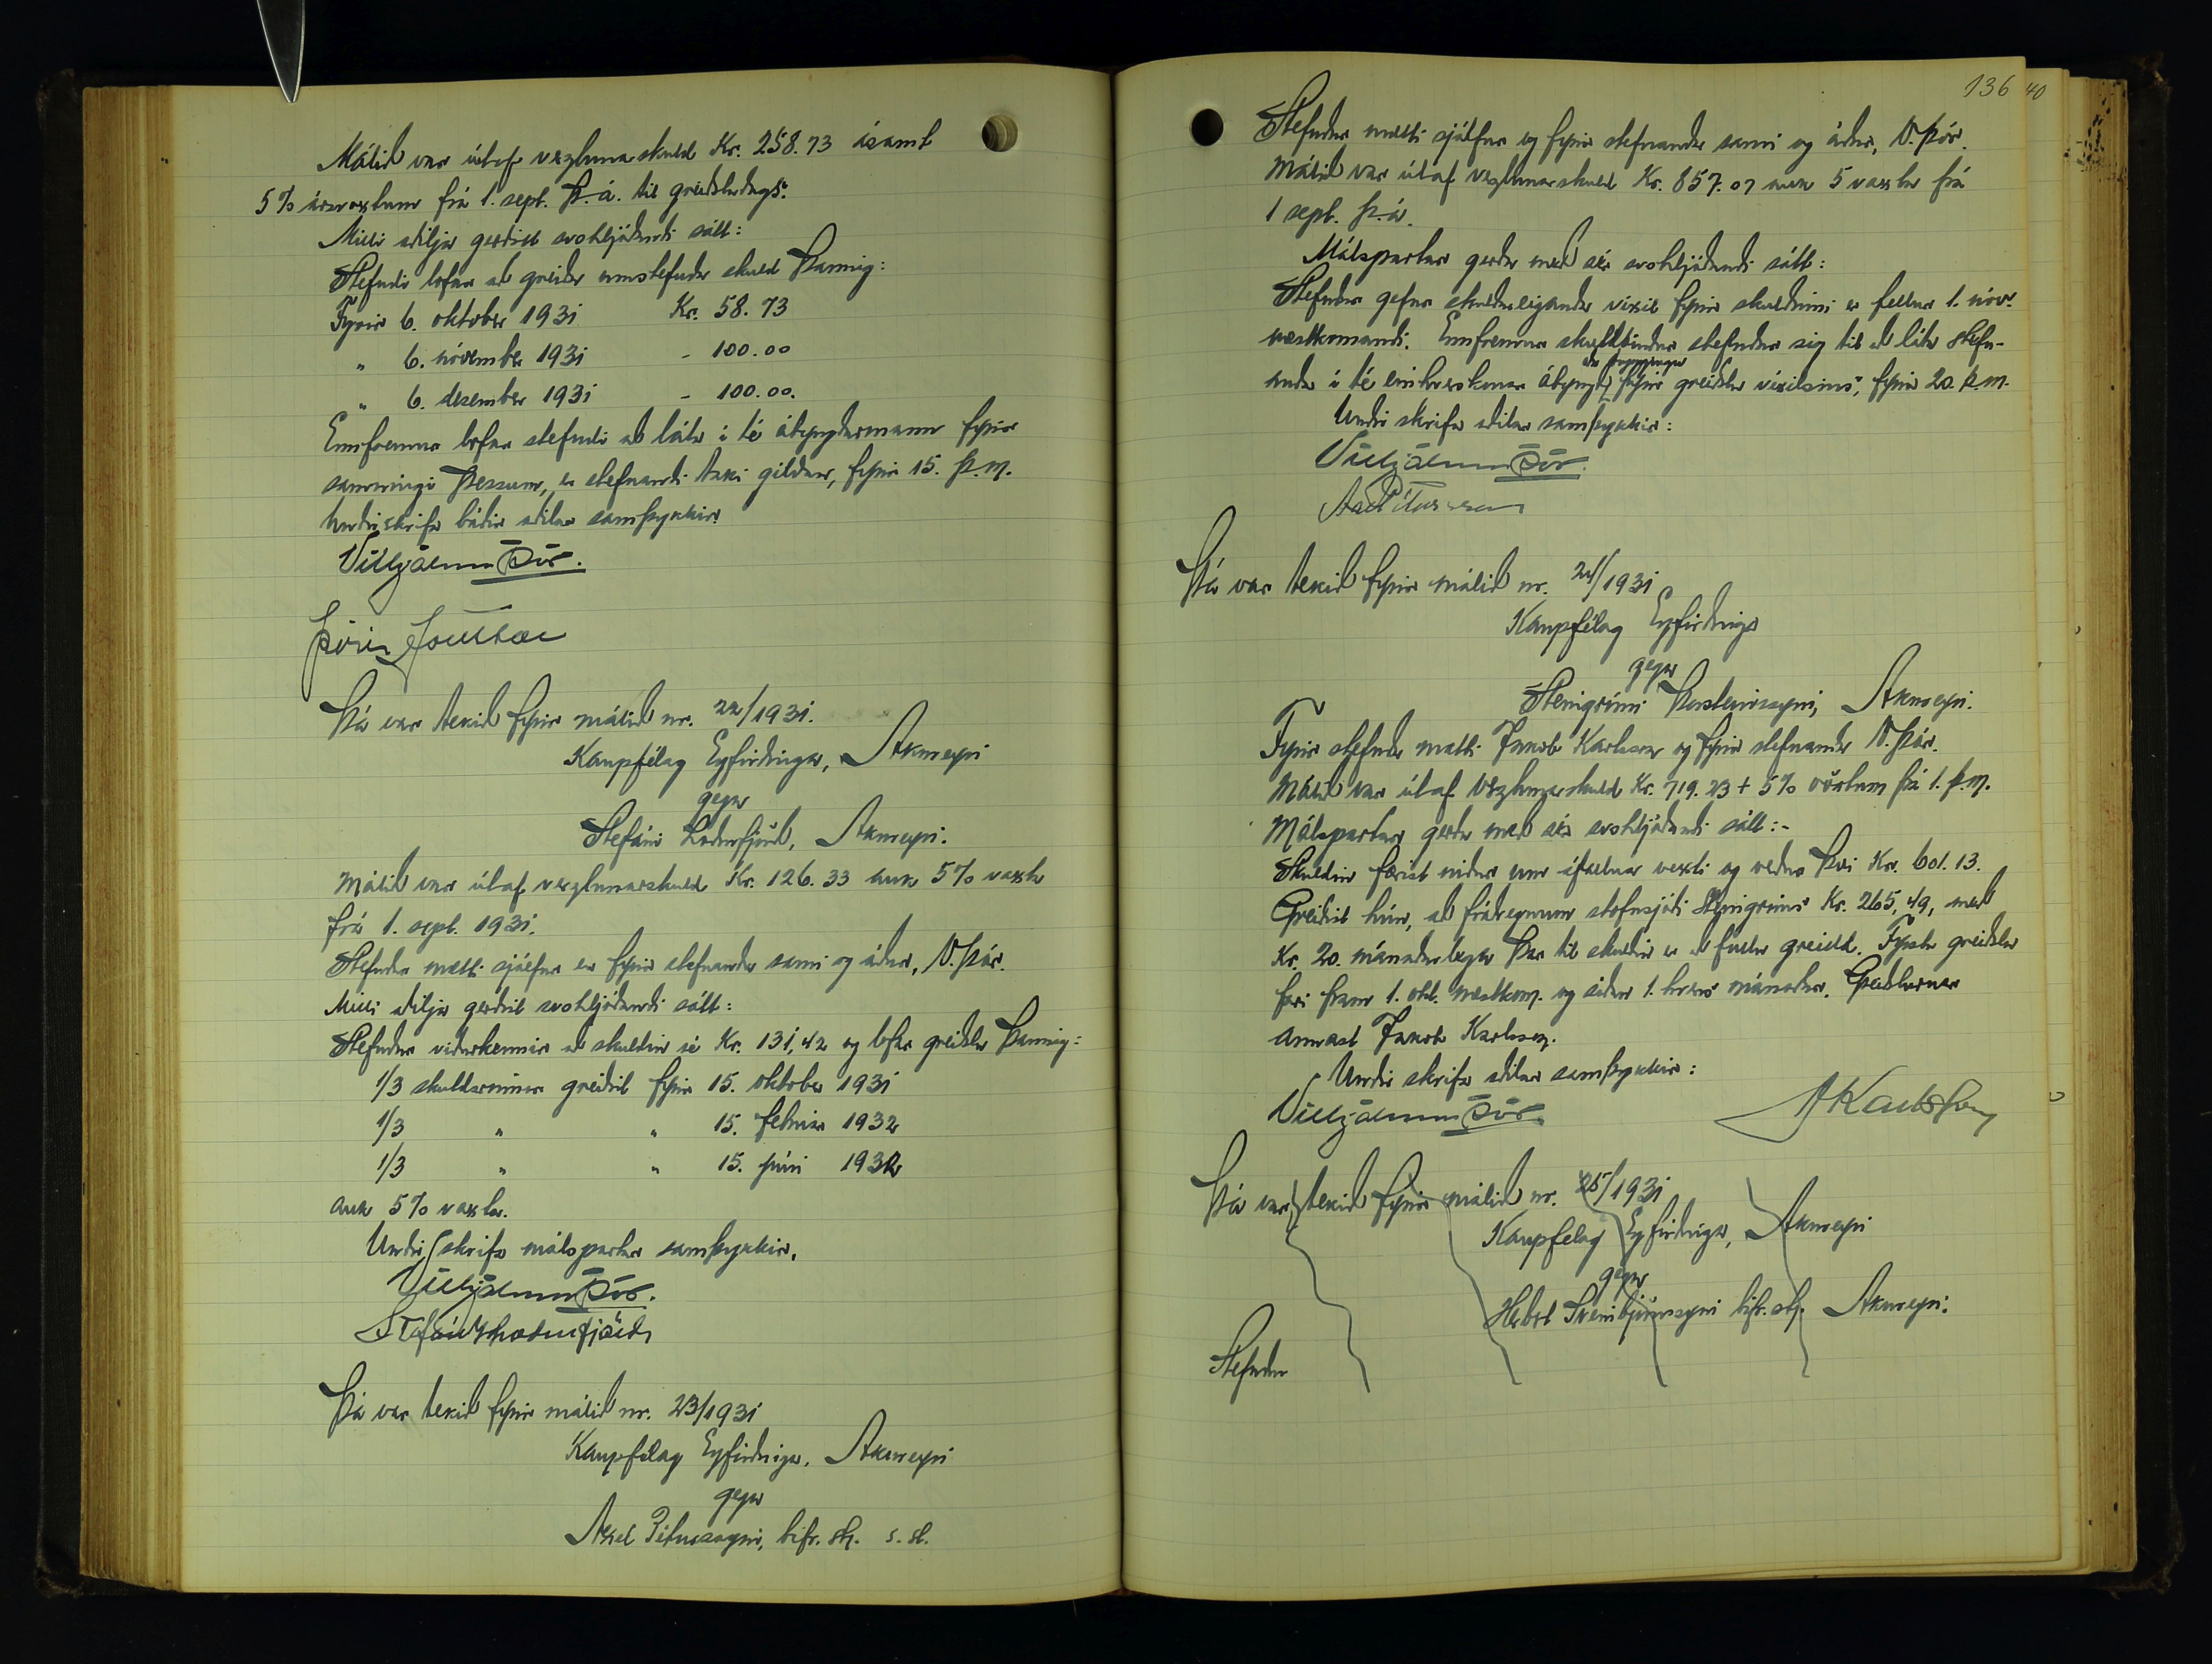 Málið var útaf verzlunarskuld Kr. 258.73 ásamt
5% ársvöxtum frá 1. sept. þ.á. til greiðsludags.
Milli aðilja gerðist svohljóðandi sátt:
Stefndi lofar að greiða umstefnda skuld þannig:
Fyrir 6. oktober 1931 Kr. 58.73
" 6. nóvember 1931 - 100.00
" 6. desember 1931 - 100.00.
Ennfremur lofar stefndi að láta í té ábyrgðarmann fyrir
samningi þessum, er stefnandi taki gildan, fyrir 15. þ.m.
Undirskrifa báðir aðilar samþykkir.
Vilhjálmur Þór.
Þórir Jónsson
Þá var tekið fyrir málið nr. 22/1931.
Kaupfélag Eyfirðinga, Akureyri
gegn
Stefáni Loðmfjörð, Akureyri.
Málið var útaf verzlunarskuld Kr. 126.33 auk 5% vaxta
frá 1. sept. 1931.
Stefndur mætti sjálfur en fyrir stefnanda sami og áður, V. Þór.
Milli aðilja gerðist svohljóðandi sátt:
Stefndur viðurkennir að skuldin sé Kr. 131,42 og lofar greiðslu þannig:
1/3 skuldarinnar greiðist fyrir 15. oktober 1931
1/3 " " 15. febrúar 1932
1/3 " " 15. júní 1932
auk 5% vaxta.
Undirskrifa málspartar samþykkir.
Vilhjálmur Þór.
Stefán Loðmfjörð
Þá var tekið fyrir málið nr. 23/1931
Kaupfélag Eyfirðinga, Akureyri
gegn
Axel Péturssyni, bifr. stj. s. st.
136 40
Stefndur mætti sjálfur og fyrir stefnanda sami og áður, V. Þór.
Málið var útaf verzlunarskuld Kr. 857.07 auk 5 vaxta frá
1 sept. þ.á.
Málspartar gerðu með sér svohljóðandi sátt:
Stefndur gefur skuldareiganda víxil fyrir skuldinni er fellur 1. nóv.
næstkomandi. Ennfremur skuldbindur stefndur sig til að láta stefn-
anda í té einhverskonar ábyrgð eða tryggingar fyrir greiðslu víxilsins, fyrir 20. þ.m.
Undir skrifa aðilar samþykkir:
Vilhjálmur Þór.
Axel Pétursson
Þá var tekið fyrir málið nr. 24/1931
Kaupfélag Eyfirðinga
gegn
Steingrími Þorsteinssyni, Akureyri.
Fyrir stefnda mætti Jakob Karlsson og fyrir stefnanda V. Þór.
Málið var útaf verzlunarskuld Kr. 719.23 + 5% vöxtum frá 1. þ.m.
Málspartar gerðu með sér svohljóðandi sátt:-
Skuldin færist niður um áfallna vexti og verður því Kr. 601.13.
Greiðist hún, að frádregnum stofnsjóði Steingríms Kr. 265,49, með
Kr. 20. mánaðarlega þar til skuldin er að fullu greidd. Fyrsta greiðsla
fari fram 1. okt. næstkom. og síðan 1. hvers mánaðar. Greiðslurnar
annast Jakob Karlsson.
Undir skrifa aðilar samþykkir:
Vilhjálmur Þór. JKarlsson
Þá var tekið fyrir málið nr. 25/1931
Kaupfelag Eyfirðinga, Akureyri
gegn
Herbert Sveinbjörnssyni bifr. stj. Akureyri.
Stefndur